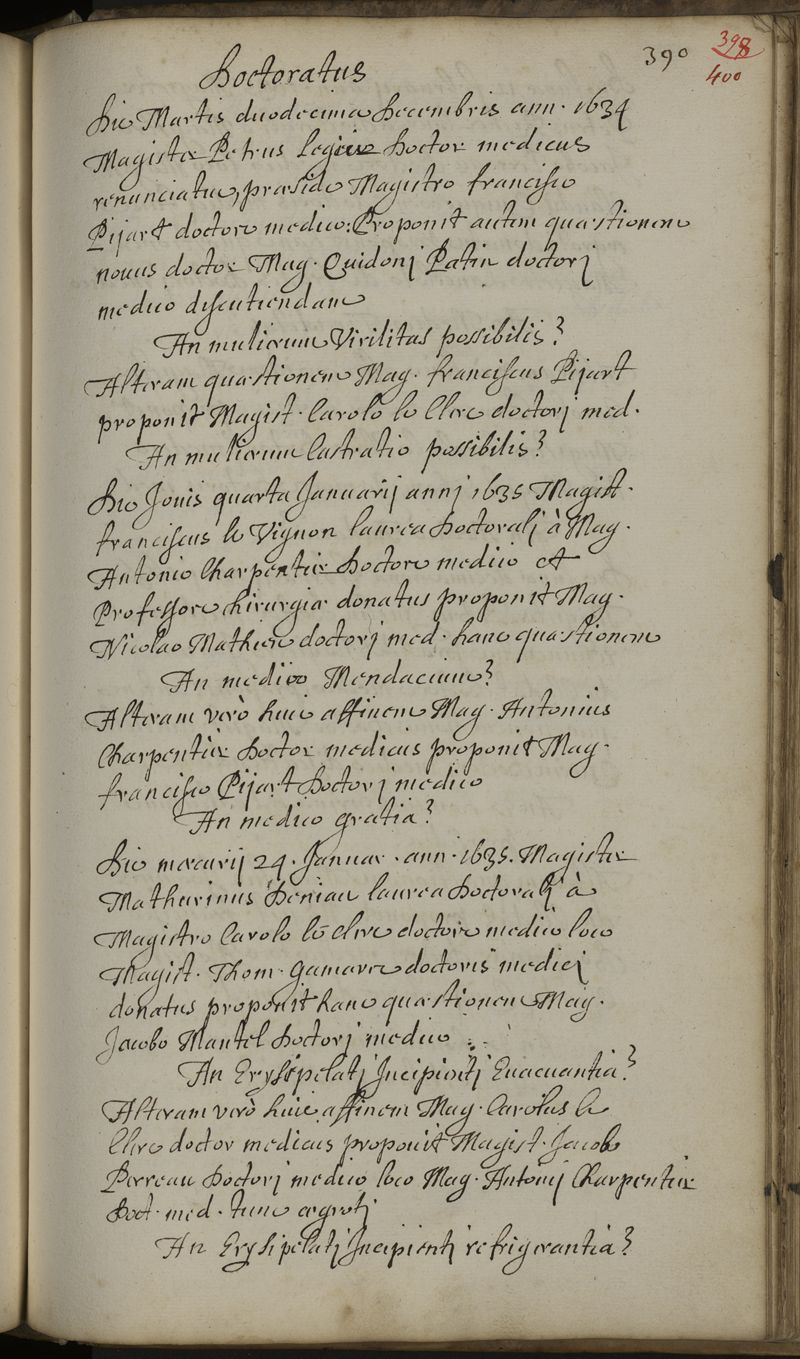 390
398
400
Doctoratus
Die Martis duodecima Decembris ann. 1634
Magister Petrus Legier Doctor medicus
renunciatur, præside Magistro francisco
Pijart doctore medico: Proponit autem quæstionem
nouus doctor Mag. Guidonj Patin doctorj
medico discutiendam
An mulierum Virilitas possibilis?
Alteram quæstionem Mag. franciscus Pijart
proponit Magist. Carolo le Clerc doctorj med.
An mulierum Castratio possibilis?
Die Jouis quarta Januarij annj 1635 Magist.
franciscus le Vignon laurea Doctoralj à Mag.
Antonio Charpentier Doctore medico et
Professore chirurgiæ donatus proponit Mag.
Nicolao Mathieu doctorj med. hanc quæstionem
An medico Mendacium?
Alteram verò huic affinem Mag. Antonius
Charpentier Doctor medicus proponit Mag.
francisco Pijart Doctorj medico
An medico gratia?
Die mercurij 24. Januar. ann. 1635. Magister
Mathurinus Deniau laurea Doctoralj à
Magistro Carolo le clerc doctore medico loco
Magist. Thom. Gamarre doctoris medicj
donatus proponit hanc quæstionem Mag.
Jacobo Mantel Doctorj medico
An Erysipelatj Incipientj Euacuantia?
Alteram verò huic affinem Mag. Carolus le
Clerc doctor medicus proponit Magist. Jacob
Perreau Doctorj medico loco Mag. Antonij Charpentier
Doct. med. tunc ægrotj
An Erysipelatj Incipientj refrigerantia?